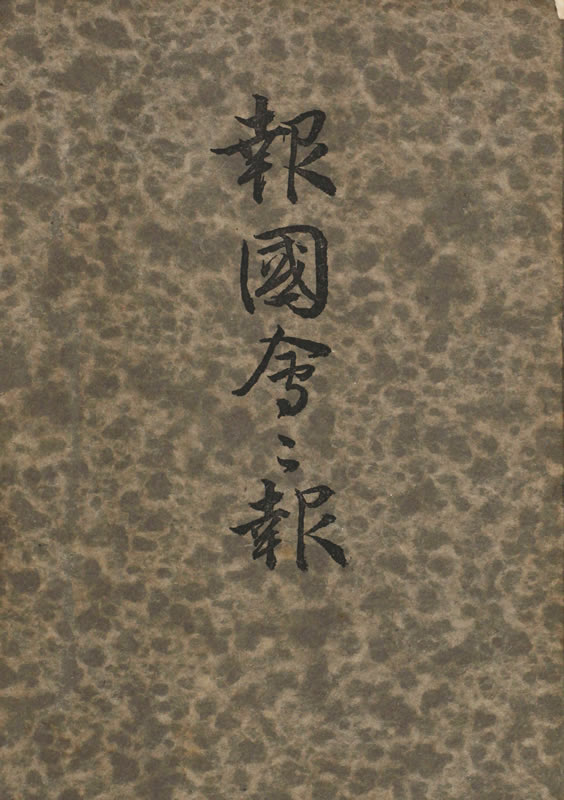 報國會〻報